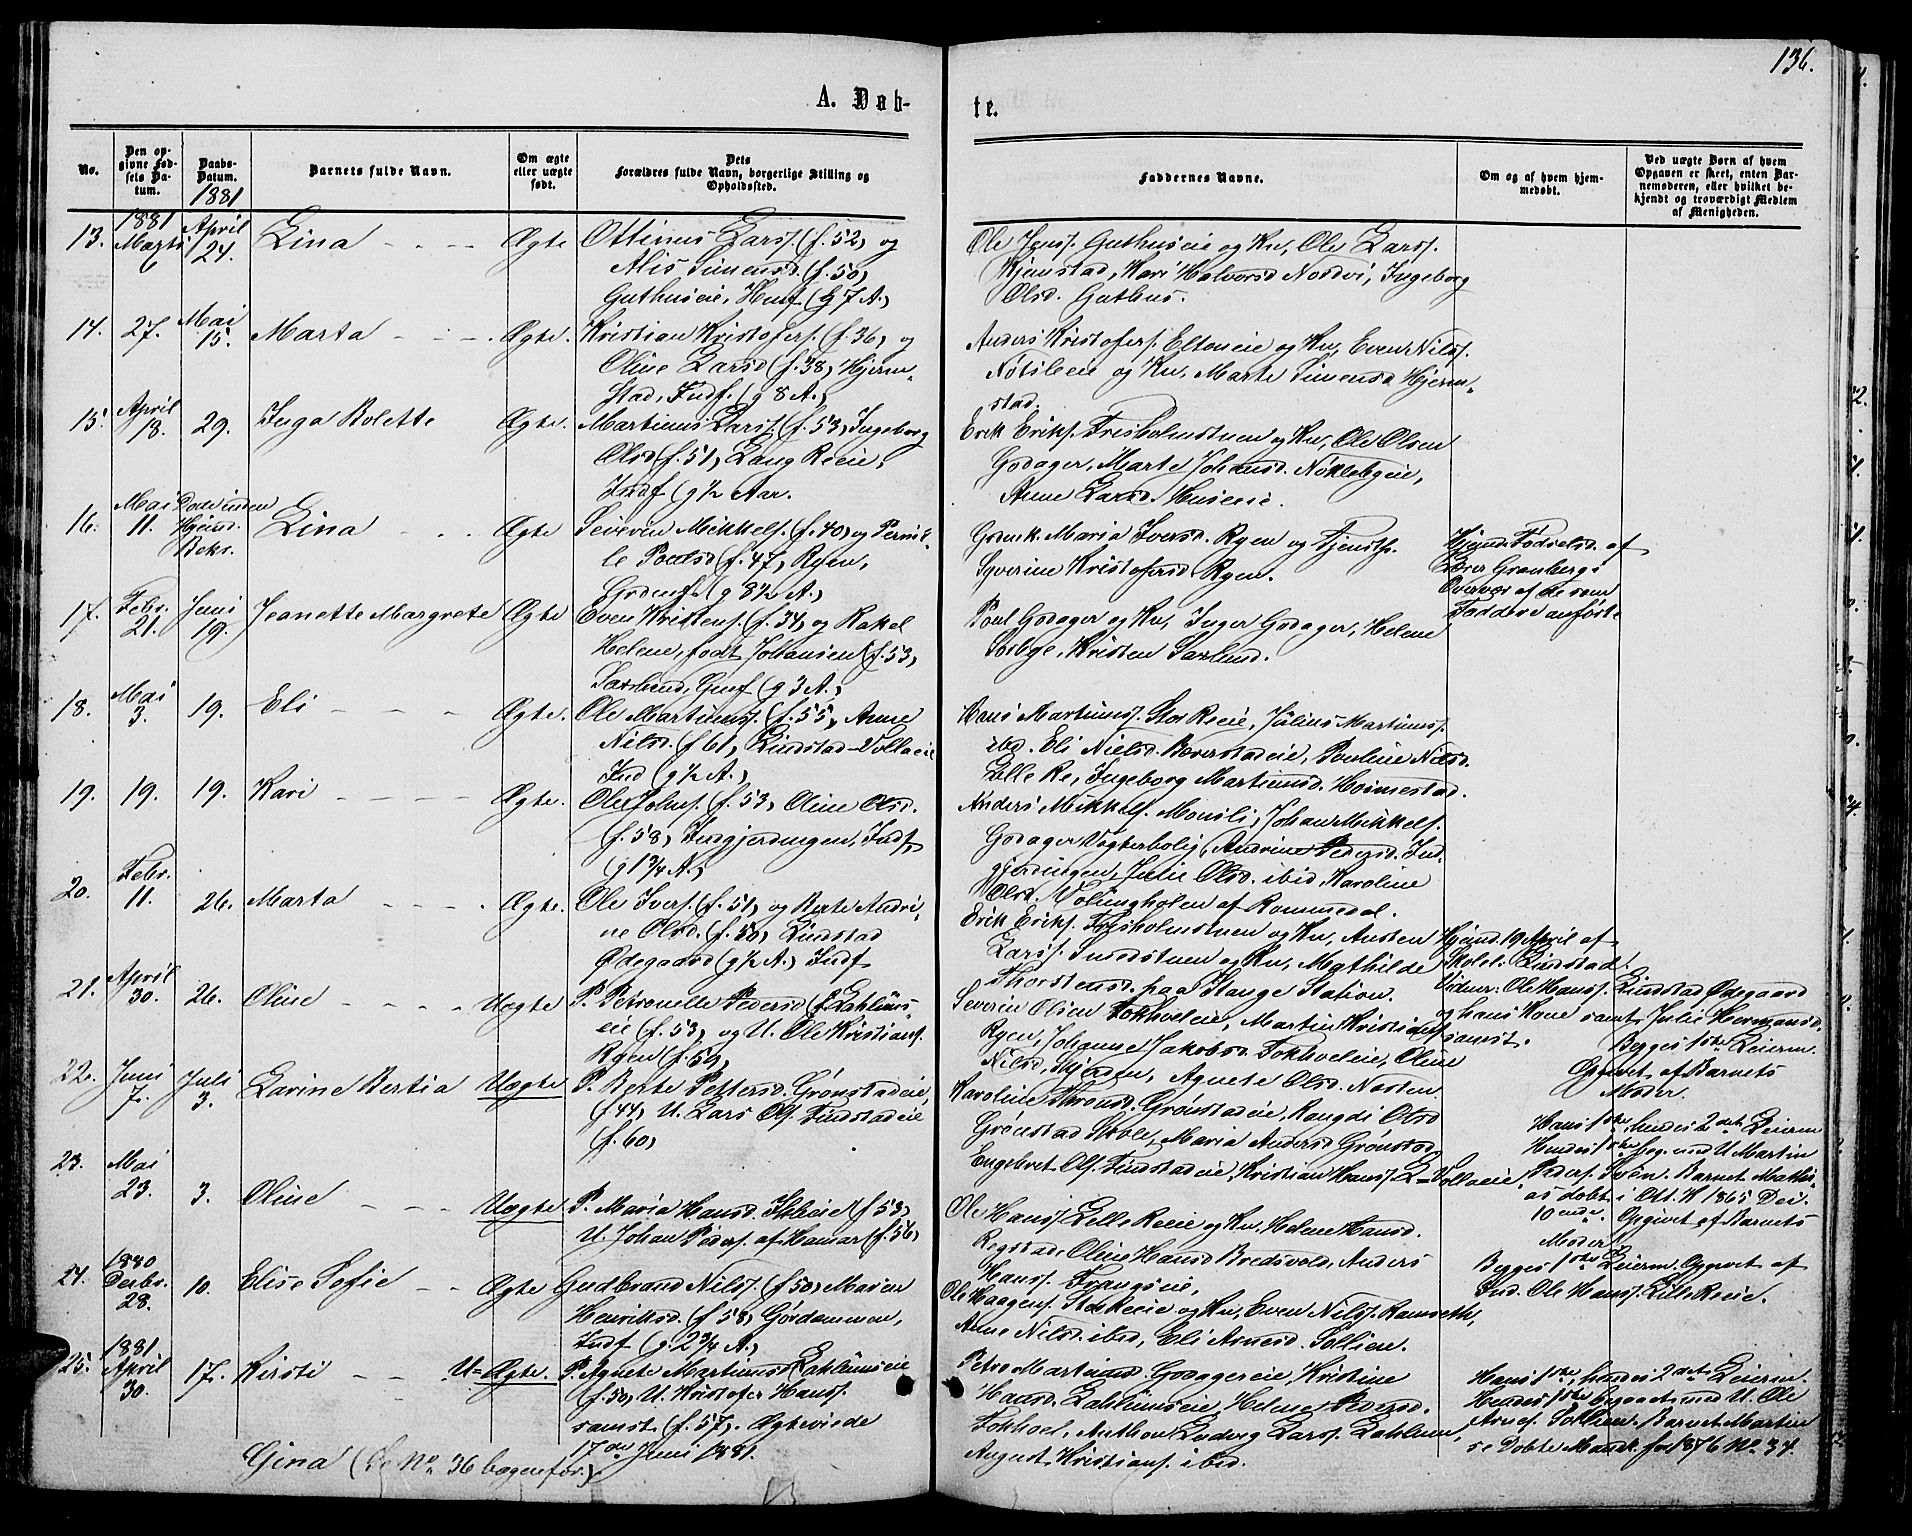 136.
A. Døb-
te.
No.
Den op-
givne Fød-
sels Da-
tum.
Daabs-
Datum.
1881
Barnets fulde Navn.
Om ægte
eller uægte
født.
Dets
Forældres fulde Navn, borgerlige Stilling og
Opholdssted.
Faddernes Navne.
Om og af hvem hjem-
medøbt.
Ved uægte Børn af hvem
Opgaven er skeet, enten Bar-
nemoderen, eller hvilket be-
kjendt og troværdigt Medlem
af Menigheden.
13. 1881 Marts 6 April 24. Lina Ægte
Ottinus Larss. (f. 52) og
Alis Simensd. (f. 50)
Guthuseie, Husf (g 7 A.)
Ole Jenss. Guthuseie og Kn, Ole Larss.
Hjemstad, Kari Halvorsd Nordvi, Ingeborg
Olsd. Guthus.
14. 27. Mai 15. Marta Ægte.
Kristian Kristofers. (f. 36) og
Oline Larsd (f. 38) Hjerm-
stad, Indf. (g 8 A.)
Anders Kristofers. Eltoneie og Kn, Even Nilss.
og Kn, Marte Simensd Hjerm-
stad.
15. April 18. 29. Inga Bolette Ægte.
Martinus Larss. (f. 53) Ingeborg
Olsd (f. 51) Lang Reeie,
Indf (g ½ Aar.
Erik Eriks. Frisholmstuen og Kn, Ole Olsen
Godager, Marte Johansd. Nøklebyeie,
Anne Larsd. Huseeie.
16. Mai 11. Døde inden Hjemd. Bekr. Lina Ægte
Severin Mikkels. (f. 40) og Pernil-
le Poulsd (f. 47) Ryen,
Grdeuf. (g 8½ A.)
Grdmk. Maria Iversd. Ryen og Tjenstp.
Syverine Kristofersd Ryen.
Hjemd. Fødselsd. af
Lærer Grønberg i
Overvær af de som
Faddere anførte
17. Febr. 21. Juni 19. Jeanette Margrete Ægte
Even Kristens. (f. 34) og Rakel
Helene, født Johansen (f. 53)
Saxlund, Gmf (g 3 A.)
Poul Godager og Kn, Inger Godager, Helene
Sørbye, Kristen Saxlund.
18. Mai 3. 19. Eli Ægte.
Ole Martinuss. (f. 55) Anne
Nilsd. (f 61) Lindstad-Vollaeie
Ind (g ½ A.)
Hans Martinuss. Stor Reeie, Julius Martinuss.
ibd. Eli Nielsd. Bæverstadeie, Pauline Nilsd.
Lille Re, Ingeborg Martinusd. Hoimestad.
19. 19. 19. Kari Ægte.
Ole Johns. (f. 53) Oline Olsd.
(f. 58) Indgjerdingen, Indf
(g 1¾ A.)
Anders Mikkels. Monsli, Johan Mikkels.
Godager Vogterbolig, Andrine Pedersd. Ind-
gjerdingen, Julie Olsd. ibid. Karoline
Olsd. Volungholen af Rommedal.
20. Febr. 11. 26. Marta Ægte.
Ole Ivers. (f. 51) og Berte Andri-
ne Olsd. (f. 50) Lindstad
Ødegaard (g ½ A.) Indf
Erik Eriks. Frisholmstuen og Kn, Austen
Larss. Sundstuen og Kn, Mathilde
Thorstensd. paa Stange Station.
Hjemd. 19 April af
Skolel. Lindstad.
Vidner: Ole Hanss. Lindstad Ødegaard
og hans Kone samt Julie Hermansd.
samst.
21. April 30. 26. Oline Uægte
P. Petronelle Pedersd (f. Zahlins-
eie (f. 53) og U. Ole Kristians.
Ryen (f. 59)
Severin Olsen Tokhveleie, Martin Kristians
Ryen, Johanne Jakobsd. Tokhveleie, Oline
Nilsd. Skjerden, Agnete Olsd. Norsten
Begges 1ste Leierm.
Opgivet af Barnets
Moder.
22. Juni 7. Juli 3. Larine Bertia Uægte
P. Berte Pettersd. Grønstadeie,
(f 44) U. Lars Ols. Findstadeie
(f. 60)
Karoline Thronsd. Grønstadeie, Rangdi Olsd
Grønstad Skole, Maria Andersd Grønstad
Engebret Ols. Findstadeie, Kristian Hanss. L-Vollaeie.
Hans 1ste, hendes 2det Leierm
Hendes 1ste beg. med U. Martin
Peders. Svèn. Barnet Mathi-
as døbt i Ott. K 1865 Dei.
10ende. Opgivet af Barnets
Moder
23. Mai 23. 3. Oline Uægte
P. Maria Hansd. Skleeie (f 53)
U. Johan Peders. af Hamar (f. 56)
Ole Hanss. Lille Reeie og Kn, Helene Hansd.
Regstad, Oline Hansd Bredsvold, Anders
Hanss. Frangseie.
Begges 1ste Leierm. Opgivet af
Ind. Ole Hanss. Lille Reeie.
24. 1880 Decbr. 28. 10. Elise Sofie Ægte
Gudbrand Nilss. (f 50) Maren
Henriksd. (f 58) Gördammen,
Indf (g 2¾ A.)
Ole Haagens. Stor Reeie og Kn, Even Nilss. Ramseth,
Anne Nilsd. ibid, Eli Arnesd. Sollien.
25. 1881 April 30. 17. Kirsti U-Ægte.
P. Agnete Martinusd Zahlinseie
(f. 50) U. Kristofer Hanss.
samst. (f. 57). Ægteviede
17de Juni 1881.
Petro Martinusd. Godagereie, Kristine
Hansd. Zahlinseie, Helene Pedersd.
Tokhoel, Anthon Ludvig Larss. Zahlin,
August Kristians. ibid.
Hans 1ste, hendes 2det Leierm.
Hendes 1ste begaaet med U. Ole
Arnes. Sollien. Barnet Martin
se Døbte Mandk. for 1876 No. 34.
Gina (Se No. 36 bagenefor.)